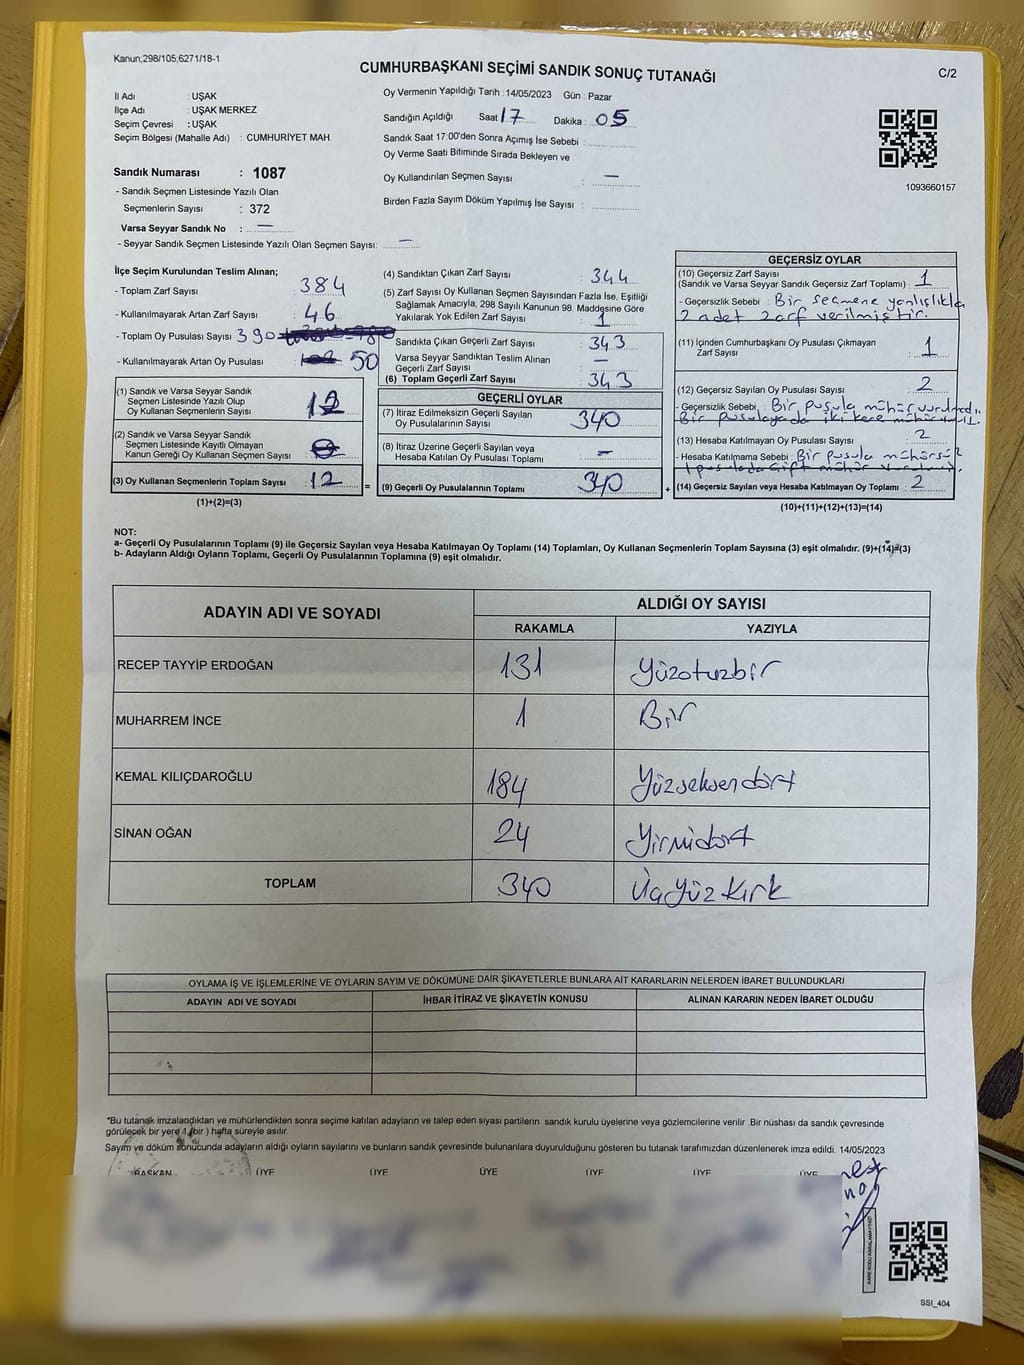 Kanun;298/105;6271/18-1
CUMHURBAŞKANI SEÇİMİ SANDIK SONUÇ TUTANAĞI
C/2
İl Adı : UŞAK
İlçe Adı : UŞAK MERKEZ
Seçim Çevresi : UŞAK
Seçim Bölgesi (Mahalle Adı) : CUMHURİYET MAH.
Sandık Numarası : 1087
- Sandık Seçmen Listesinde Yazılı Olan
Seçmenlerin Sayısı : 372
Varsa Seyyar Sandık No : —
- Seyyar Sandık Seçmen Listesinde Yazılı Olan Seçmen Sayısı: —
Oy Vermenin Yapıldığı Tarih : 14/05/2023 Gün : Pazar
Sandığın Açıldığı Saat 17 Dakika : 05
Sandık Saat 17:00'den Sonra Açımış İse Sebebi :
Oy Verme Saati Bitiminde Sırada Bekleyen ve
Oy Kullandırılan Seçmen Sayısı : —
Birden Fazla Sayım Döküm Yapılmış İse Sayısı :
1093660157
İlçe Seçim Kurulundan Teslim Alınan;
- Toplam Zarf Sayısı : 384
- Kullanılmayarak Artan Zarf Sayısı : 46
- Toplam Oy Pusulası Sayısı 390
- Kullanılmayarak Artan Oy Pusulası : 50
(1) Sandık ve Varsa Seyyar Sandık
Seçmen Listesinde Yazılı Olup
Oy Kullanan Seçmenlerin Sayısı : 12
(2) Sandık ve Varsa Seyyar Sandık
Seçmen Listesinde Kayıtlı Olmayan
Kanun Gereği Oy Kullanan Seçmen Sayısı :
(3) Oy Kullanan Seçmenlerin Toplam Sayısı : 12 =
(1)+(2)=(3)
(4) Sandıktan Çıkan Zarf Sayısı : 344
(5) Zarf Sayısı Oy Kullanan Seçmen Sayısından Fazla İse, Eşitliği
Sağlamak Amacıyla, 298 Sayılı Kanunun 98. Maddesine Göre
Yakılarak Yok Edilen Zarf Sayısı : 1
Sandıkta Çıkan Geçerli Zarf Sayısı : 343
Varsa Seyyar Sandıktan Teslim Alınan
Geçerli Zarf Sayısı : —
(6) Toplam Geçerli Zarf Sayısı : 343
GEÇERLİ OYLAR
(7) İtiraz Edilmeksizin Geçerli Sayılan
Oy Pusulalarının Sayısı : 340
(8) İtiraz Üzerine Geçerli Sayılan veya
Hesaba Katılan Oy Pusulası Toplamı : —
(9) Geçerli Oy Pusulalarının Toplamı : 340 +
GEÇERSİZ OYLAR
(10) Geçersiz Zarf Sayısı
(Sandık ve Varsa Seyyar Sandık Geçersiz Zarf Toplamı) : 1
- Geçersizlik Sebebi : Bir seçmene yanlışlıkla
2 adet zarf verilmiştir.
(11) İçinden Cumhurbaşkanı Oy Pusulası Çıkmayan
Zarf Sayısı : 1
(12) Geçersiz Sayılan Oy Pusulası Sayısı : 2
- Geçersizlik Sebebi : Bir pusula mühür vurulmadı.
Bir pusulayada iki kere
(13) Hesaba Katılmayan Oy Pusulası Sayısı : 2
- Hesaba Katılmama Sebebi : Bir pusula mühürsüz
1 pusulada çift mühür
(14) Geçersiz Sayılan veya Hesaba Katılmayan Oy Toplamı : 2
(10)+(11)+(12)+(13)=(14)
NOT:
a- Geçerli Oy Pusulalarının Toplamı (9) ile Geçersiz Sayılan veya Hesaba Katılmayan Oy Toplamı (14) Toplamları, Oy Kullanan Seçmenlerin Toplam Sayısına (3) eşit olmalıdır. (9)+(14)=(3)
b- Adayların Aldığı Oyların Toplamı, Geçerli Oy Pusulalarının Toplamına (9) eşit olmalıdır.
ADAYIN ADI VE SOYADI
ALDIĞI OY SAYISI
RAKAMLA YAZIYLA
RECEP TAYYİP ERDOĞAN 131 Yüzotuzbir
MUHARREM İNCE 1 Bir
KEMAL KILIÇDAROĞLU 184 Yüzseksendört
SİNAN OĞAN 24 Yirmidört
TOPLAM 340 Üçyüz kırk
OYLAMA İŞ VE İŞLEMLERİNE VE OYLARIN SAYIM VE DÖKÜMÜNE DAİR ŞİKAYETLERLE BUNLARA AİT KARARLARIN NELERDEN İBARET BULUNDUKLARI
ADAYIN ADI VE SOYADI İHBAR İTİRAZ VE ŞİKAYETİN KONUSU ALINAN KARARIN NEDEN İBARET OLDUĞU
*Bu tutanak imzalandıktan ve mühürlendikten sonra seçime katılan adayların ve talep eden siyasi partilerin sandık kurulu üyelerine veya gözlemcilerine verilir .Bir nüshası da sandık çevresinde
görülecek bir yere 1 (bir ) hafta süreyle asılır.
Sayım ve döküm sonucunda adayların aldığı oyların sayılarını ve bunların sandık çevresinde bulunanlara duyurulduğunu gösteren bu tutanak tarafımızdan düzenlenerek imza edildi. 14/05/2023
BAŞKAN ÜYE ÜYE ÜYE ÜYE ÜYE ÜYE
KARE KODU KARALAMAYINIZ!
SSI_404